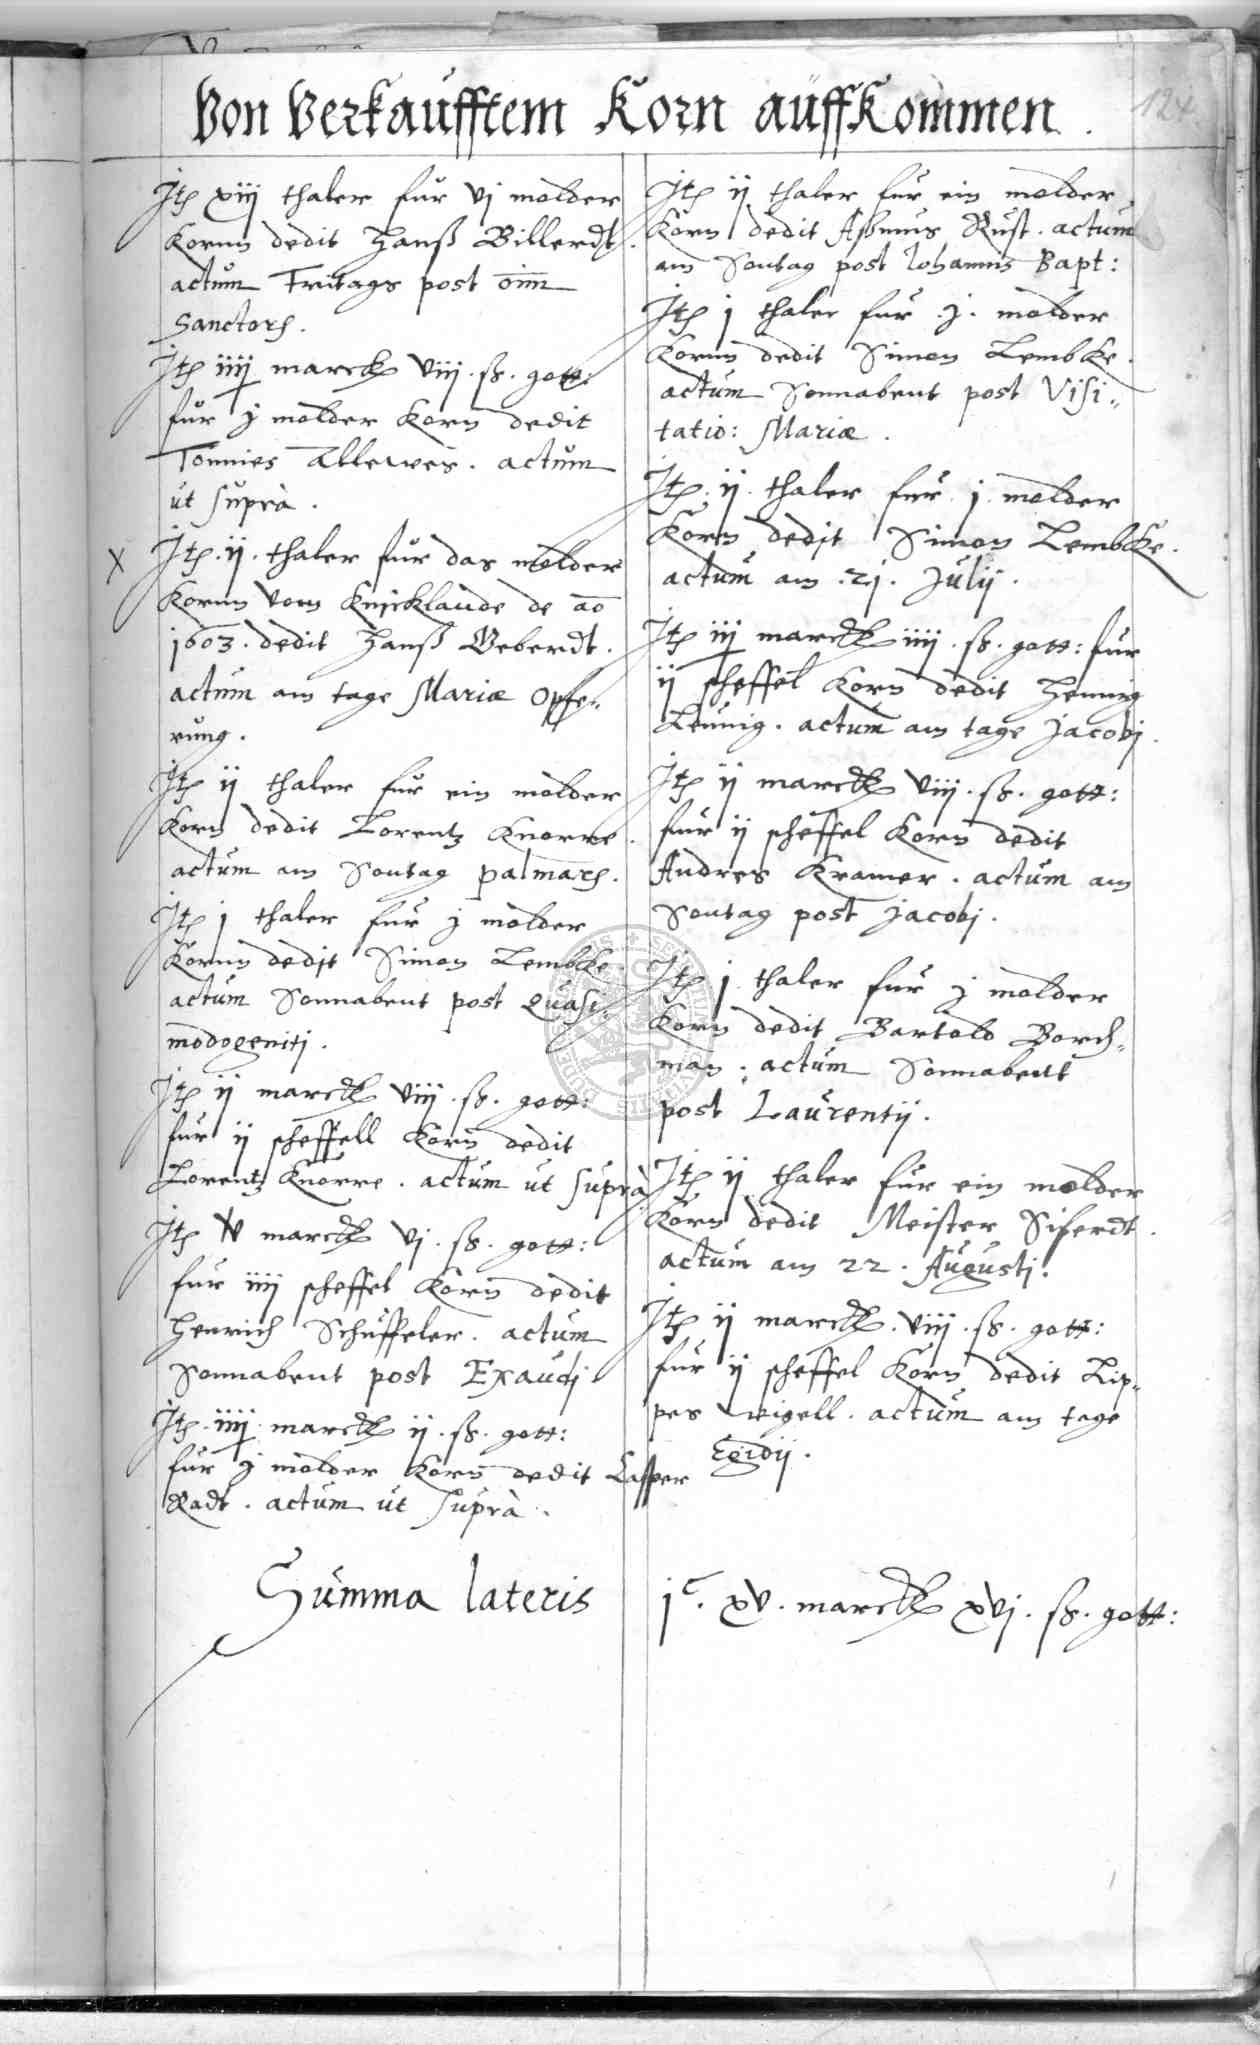 Von Verkaufftem Korn auffkommen.
124
Itē xiij thaler fur vj molder
Korns dedit Hanß Billerdt.
actum Fritags post oīm
Sanctorū.
Itē iiij marck viij. ß. gott:
fur j molder Korn dedit
Tonnies Allewes. actum
ut supra.
X
Itē. ij. thaler fur das molder
Korns vom Knicklaude de ao
1603. dedit Hanß Geberdt.
actum am tage Mariæ Opffe„
rung.
Itē ij thaler fur ein molder
Korn dedit Lorentz Knorre.
actum am Sontag palmarū.
Itē j thaler fur j molder
Korns dedit Simon Lembcke
actum Sonnabent post Quasi„
modogeniti.
Itē ij marck viij. ß. gott:
fur ij scheffell Korn dedit
Lorentz Knorre. actum ut supra
Itē v marck vj. ß. gott:
fur iiij scheffel Korn dedit
Henrich Schuffeler. actum
Sonnabent post Exaudj
Itē. iiij marck ij. ß. gott:
fur j molder Korn dedit Casper
Radt. actum ut supra.
Itē ij thaler fur ein molder
Korn dedit Aßmus Rust. actum
am Sontag post Iohannis Bapt:
Itē j thaler fur .j. molder
Korns dedit Simon Lembcke.
actum Sonnabent post Visi„
tatio: Mariæ.
Itē. ij. thaler fur j. molder
Korn dedit Simon Lembcke.
actum am .21. Julij.
Itē iij marck iiij. ß. gott: fur
ij scheffel Korn dedit Hennig
Leunig. actum am tage Jacobj.
Itē ij marck viij. ß. gott:
fur ij scheffel Korn dedit
Andres Kramer. actum am
Sontag post Jacobj.
Itē j thaler fur j molder
Korn dedit Bartold Borch„
man. actum Sonnabent
post Laurentij.
Itē ij thaler fur ein molder
Korn dedit Meister Siferdt.
actum am 22. Augustj.
Itē ij marck. viij. ß. gott:
fur ij scheffel Korn dedit Lip„
pes weigell. actum am tage
Egidij.
Summa lateris jᶜ. xv. marck xvj. ß. gott: